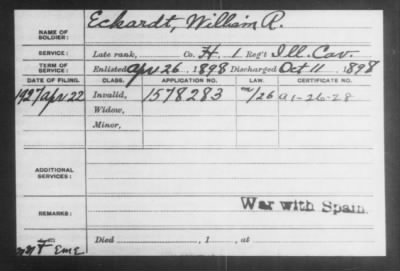 NAME OF SOLDIER: Eckardt, William R.
SERVICE: Late rank, Co. H. 1 Reg't Ill. Cav.
TERM OF SERVICE: Enlisted Apr 26, 1898 Discharged Oct 11, 1898
DATE OF FILING. CLASS. APPLICATION NO. LAW. CERTIFICATE NO.
1927/Apr 22 Invalid, 1578283 m/26 a1-26-28
Widow,
Minor,
ADDITIONAL SERVICES:
REMARKS: War with Spain.
Died , 1 , at